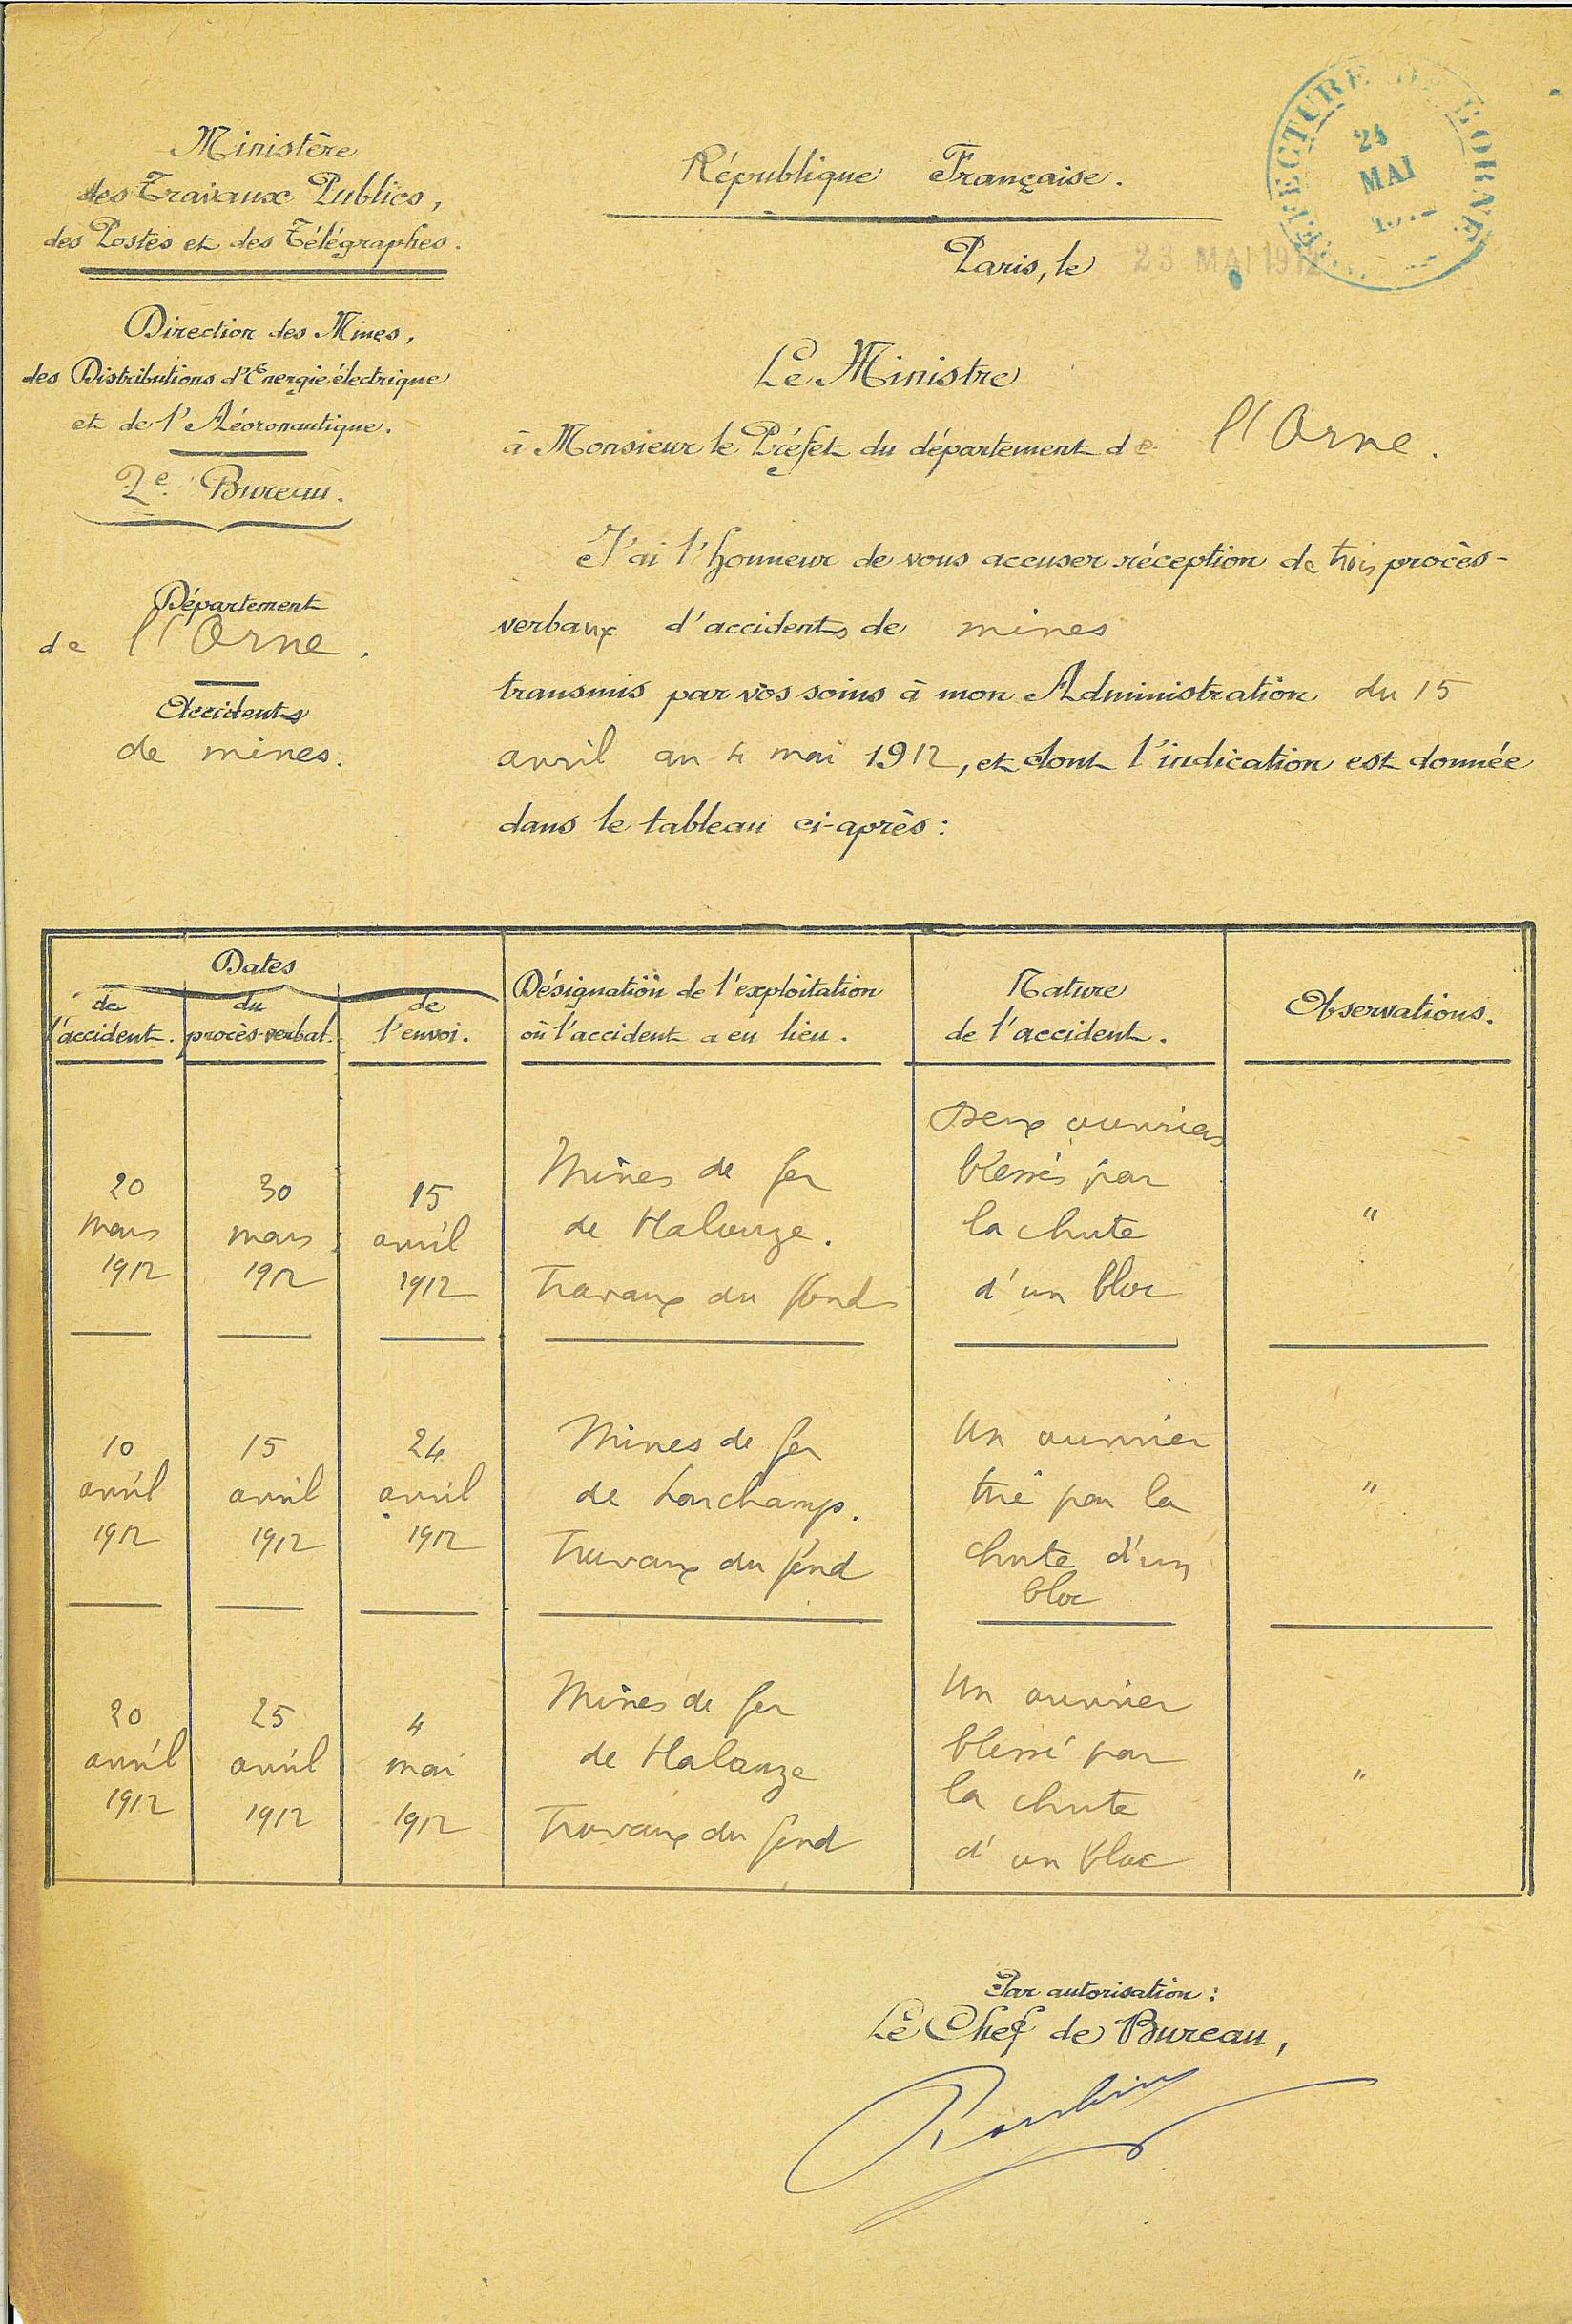 Ministère
des Travaux Publics,
des Postes et des Télégraphes.
Direction des Mines,
des Distributions d'Energie électrique
et de l'Aéoronautique.
2e Bureau.
Département
de l'Orne.
Accidents
de mines.
République Française.
PREFECTURE DE L'ORNE
24
MAI
Paris, le 23 MAI 1912
Le Ministre
à Monsieur le Préfet du département de l'Orne.
J'ai l'honneur de vous accuser réception de trois procès-
verbaux d'accidents de mines
transmis par vos soins à mon Administration du 15
avril au 4 mai 1912, et dont l'indication est donnée
dans le tableau ci-après:
Dates
de
l'accident.
du
procès-verbal.
de
l'envoi.
Désignation de l'exploitation
où l'accident a eu lieu.
Nature
de l'accident.
Observations.
20
mars
1912
30
mars
1912
15
avril
1912
Mines de fer
de Halouze.
Travaux du fond
Deux ouvriers
blessés par
la chute
d'un bloc
"
10
avril
1912
15
avril
1912
24
avril
1912
Mines de fer
de Lonchamp.
Travaux du fond
Un ouvrier
tué par la
chute d'un
bloc
"
20
avril
1912
25
avril
1912
4
mai
1912
Mines de fer
de Halouze
Travaux du fond
Un ouvrier
blessé par
la chute
d'un bloc
"
Par autorisation:
Le Chef de Bureau,